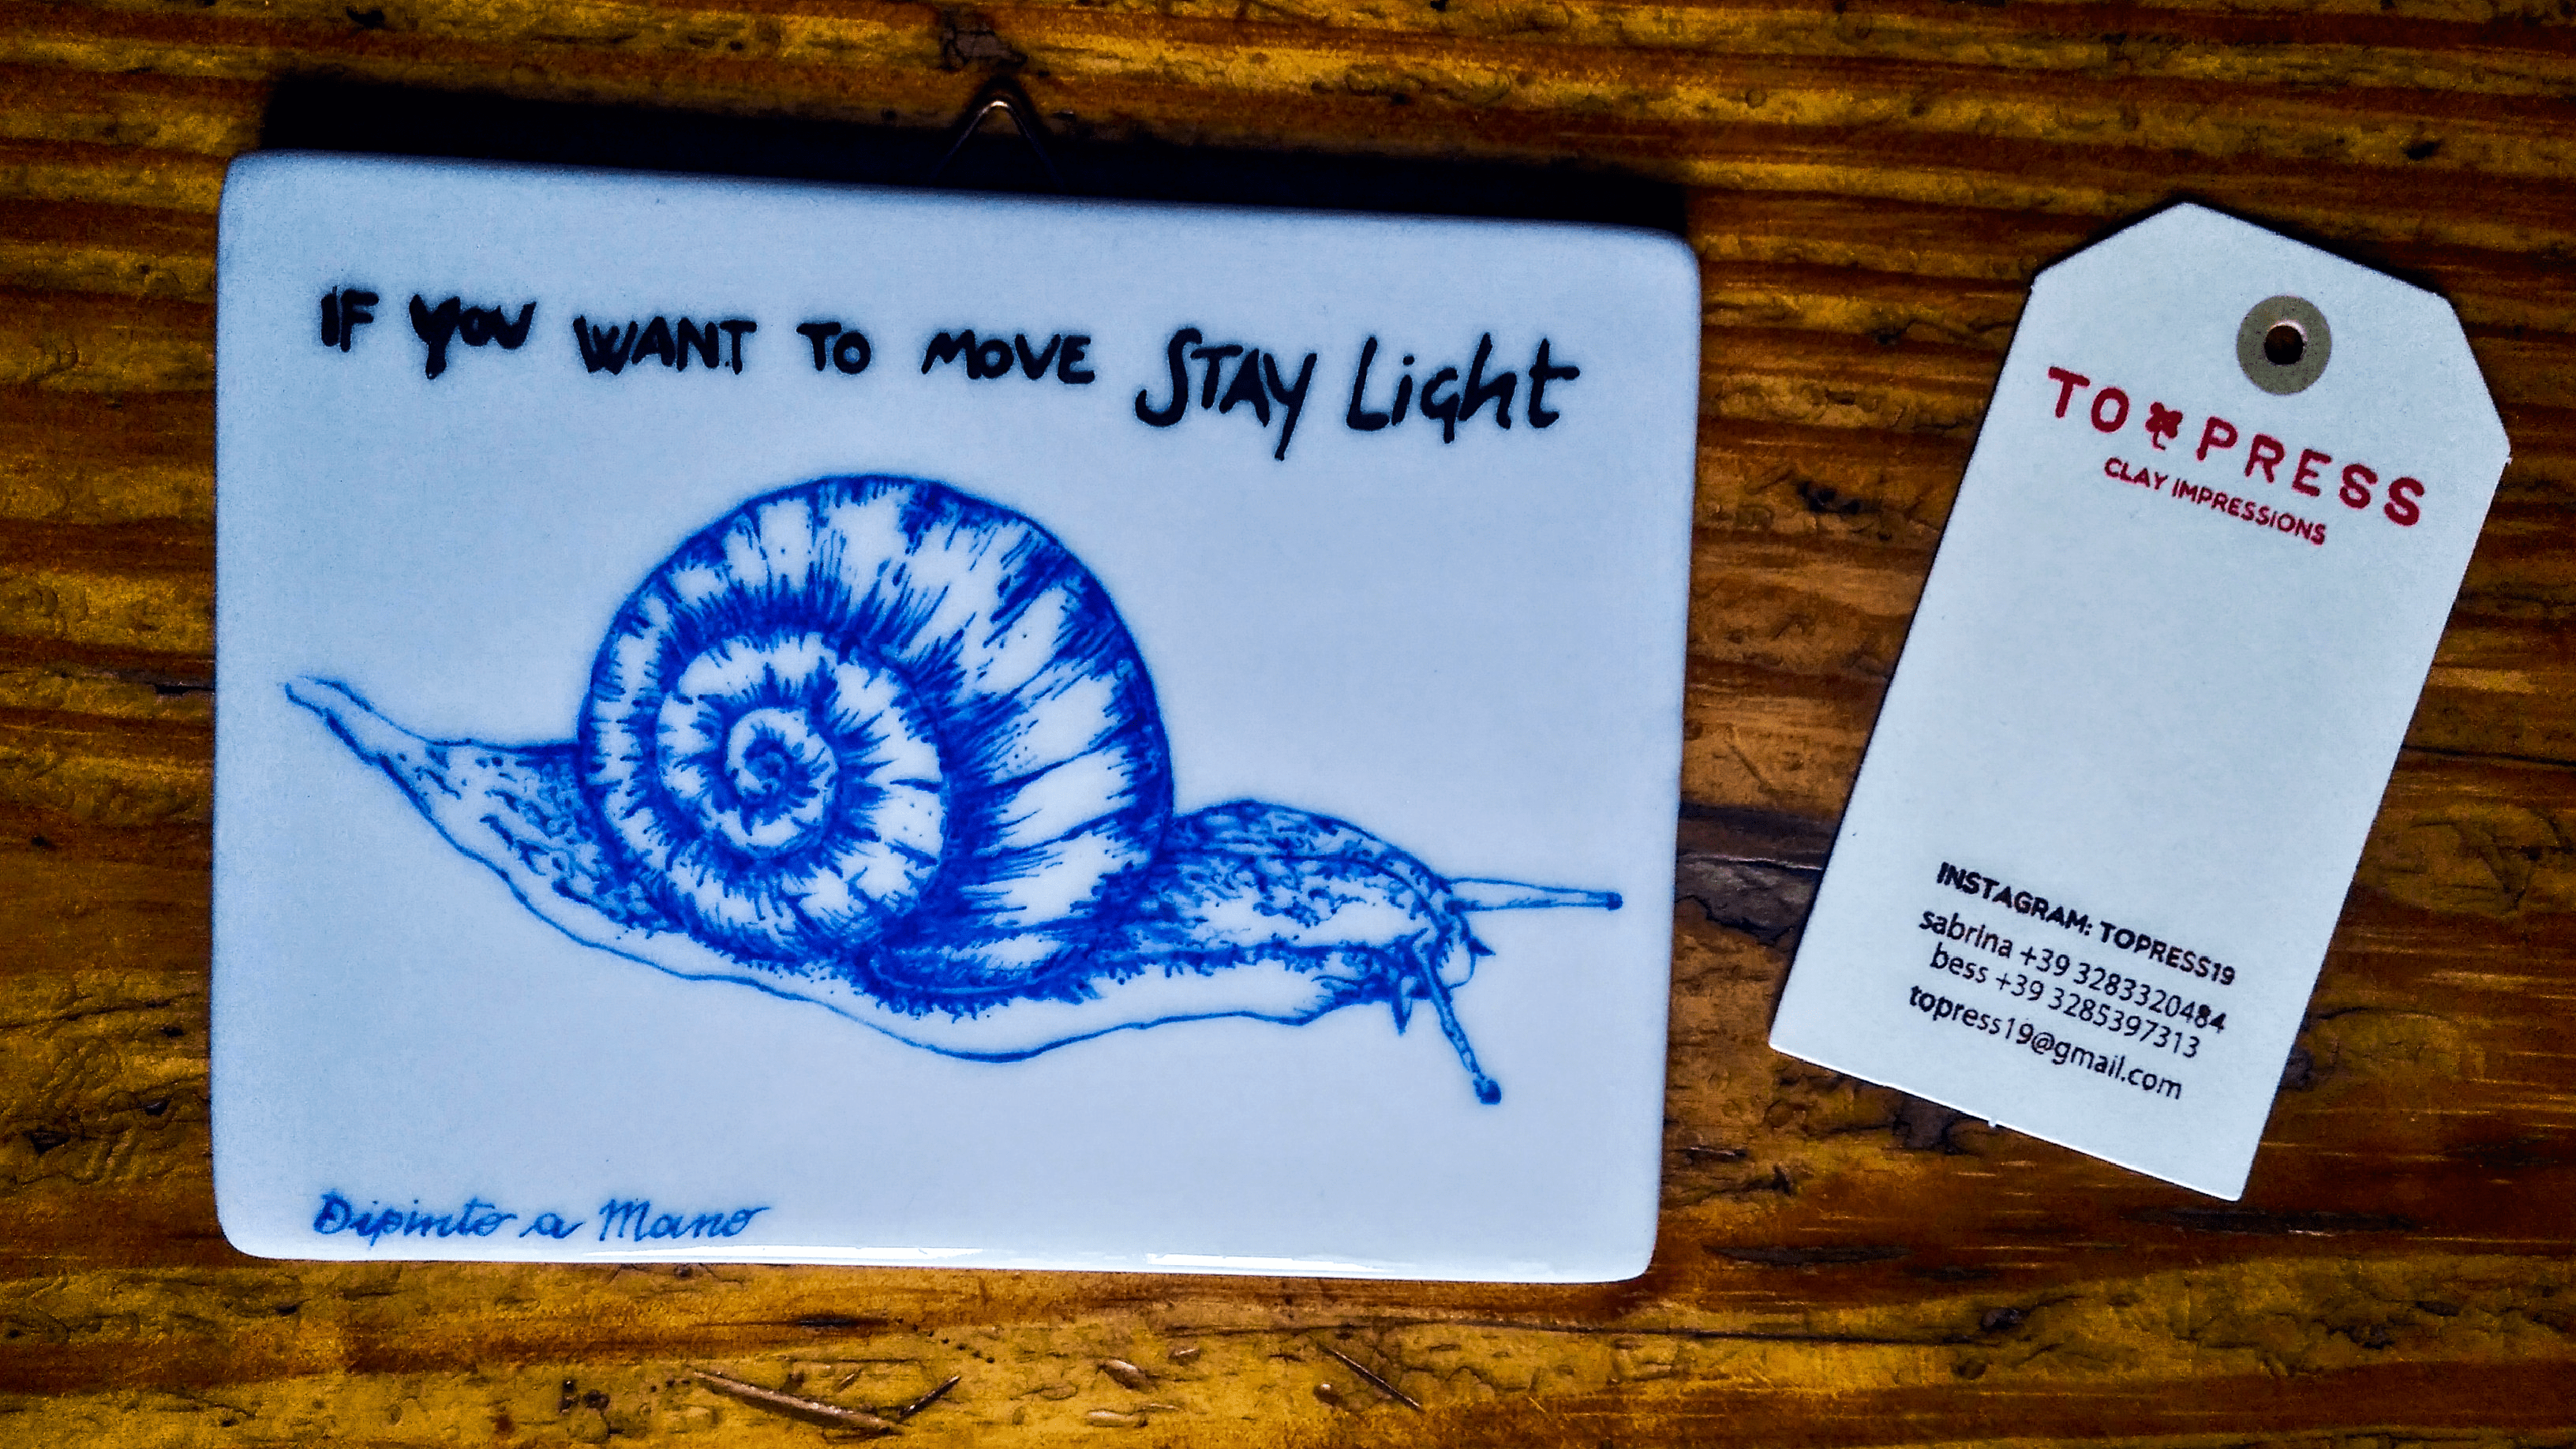 IF YOU WANT TO MOVE STAY Light
Dipinto a Mano
TO PRESS
CLAY IMPRESSIONS
INSTAGRAM: TOPRESS19
sabrina +39 3283320484
bess +39 3285397313
topress19@gmail.com